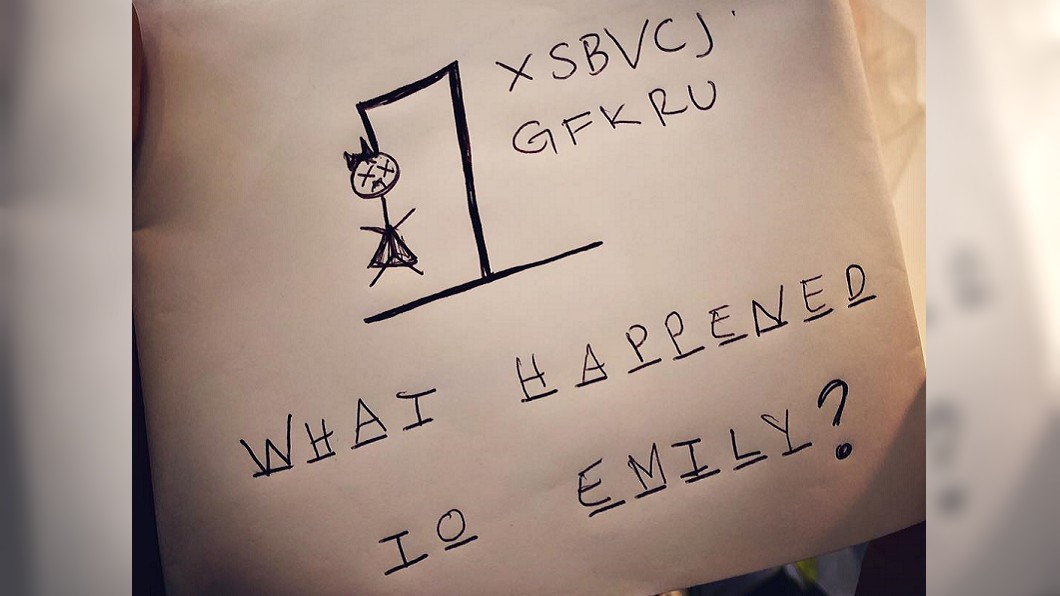 XSBVCJ
GFKRU
WHAT HAPPENED
TO EMILY?